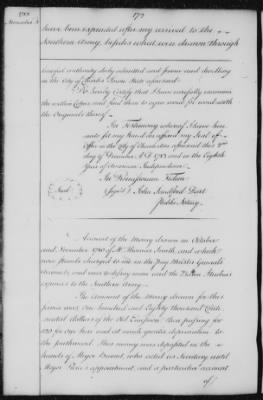 172
1783
December 3
have been expended after my arrival to the
Southern Army, besides what were drawn through
hereof authority duly admitted and sworn and dwelling
in the City of Charles Town State aforesaid
Do hereby Certify that I have carefully examined
the within Copies and find them to agree word for word with
the Originals thereof
In Testimony whereof I have here
unto set my Hand & affixed my Seal of
Office in the City of Charleston aforesaid this 3d
day of December A D 1783 and in the Eighth
Year of American Independence
Seal
(Sign'd) John Sandford Dart
Public Notary
Account of the Money drawn in October
and November 1780 of Mr Thomas Smith, and which
were charged to me in the Pay Master Generals
Accounts, and was to defray mine and the Baron Steubens
expences to the Southern Army
The Amount of the Money drawn for this
purpose was One hundred and Eighty thousand Conti-
nental Dollars of the Old Emission then passing for
for one here and at much greater depreciation to
the Southward. This money was deposited in the
hands of Major Burnet, who acted as Secretary until
Major Pierce's appointment, and a particular account
of